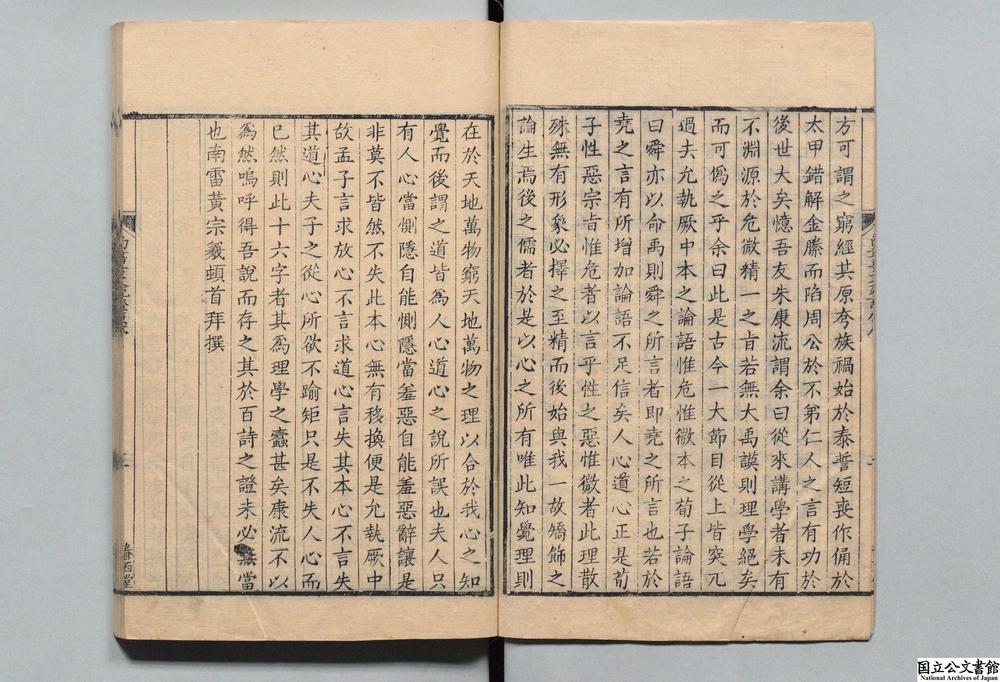 方可謂之窮經其原夸族禍始於泰誓短喪作俑於
太甲錯解金縢而陷周公於不弟仁人之言有功於
後世大矣憶吾友朱康流謂余曰從來講學者未有
不淵源於危微精一之旨若無大禹謨則理學絕矣
而可偽之乎余曰此是古今一大節目從上皆突兀
過去允執厥中本之論語惟危惟微本之荀子論語
曰舜亦以命禹則舜之所言者即堯之所言也若於
堯之言有所增加論語不足信矣人心道心正是荀
子性惡宗旨惟危者以言乎性之惡惟微者此理散
殊無有形象必擇之至精而後始與我一故矯飾之
論生焉後之儒者於是以心之所有唯此知覺理則
在於天地萬物窮天地萬物之理以合於我心之知
覺而後謂之道皆為人心道心之說所誤也夫人只
有人心當惻隱自能惻隱當羞惡自能羞惡辭讓是
非莫不皆然不失此本心無有移換便是允執厥中
故孟子言求放心不言求道心言失其本心不言失
其道心夫子之從心所欲不踰矩只是不失人心而
已然則此十六字者其為理學之蠹甚矣康流不以
為然嗚呼得吾說而存之其於百詩之證未必無當
也南雷黃宗羲頓首拜撰
眷西堂
国立公文書館
National Archives of Japan